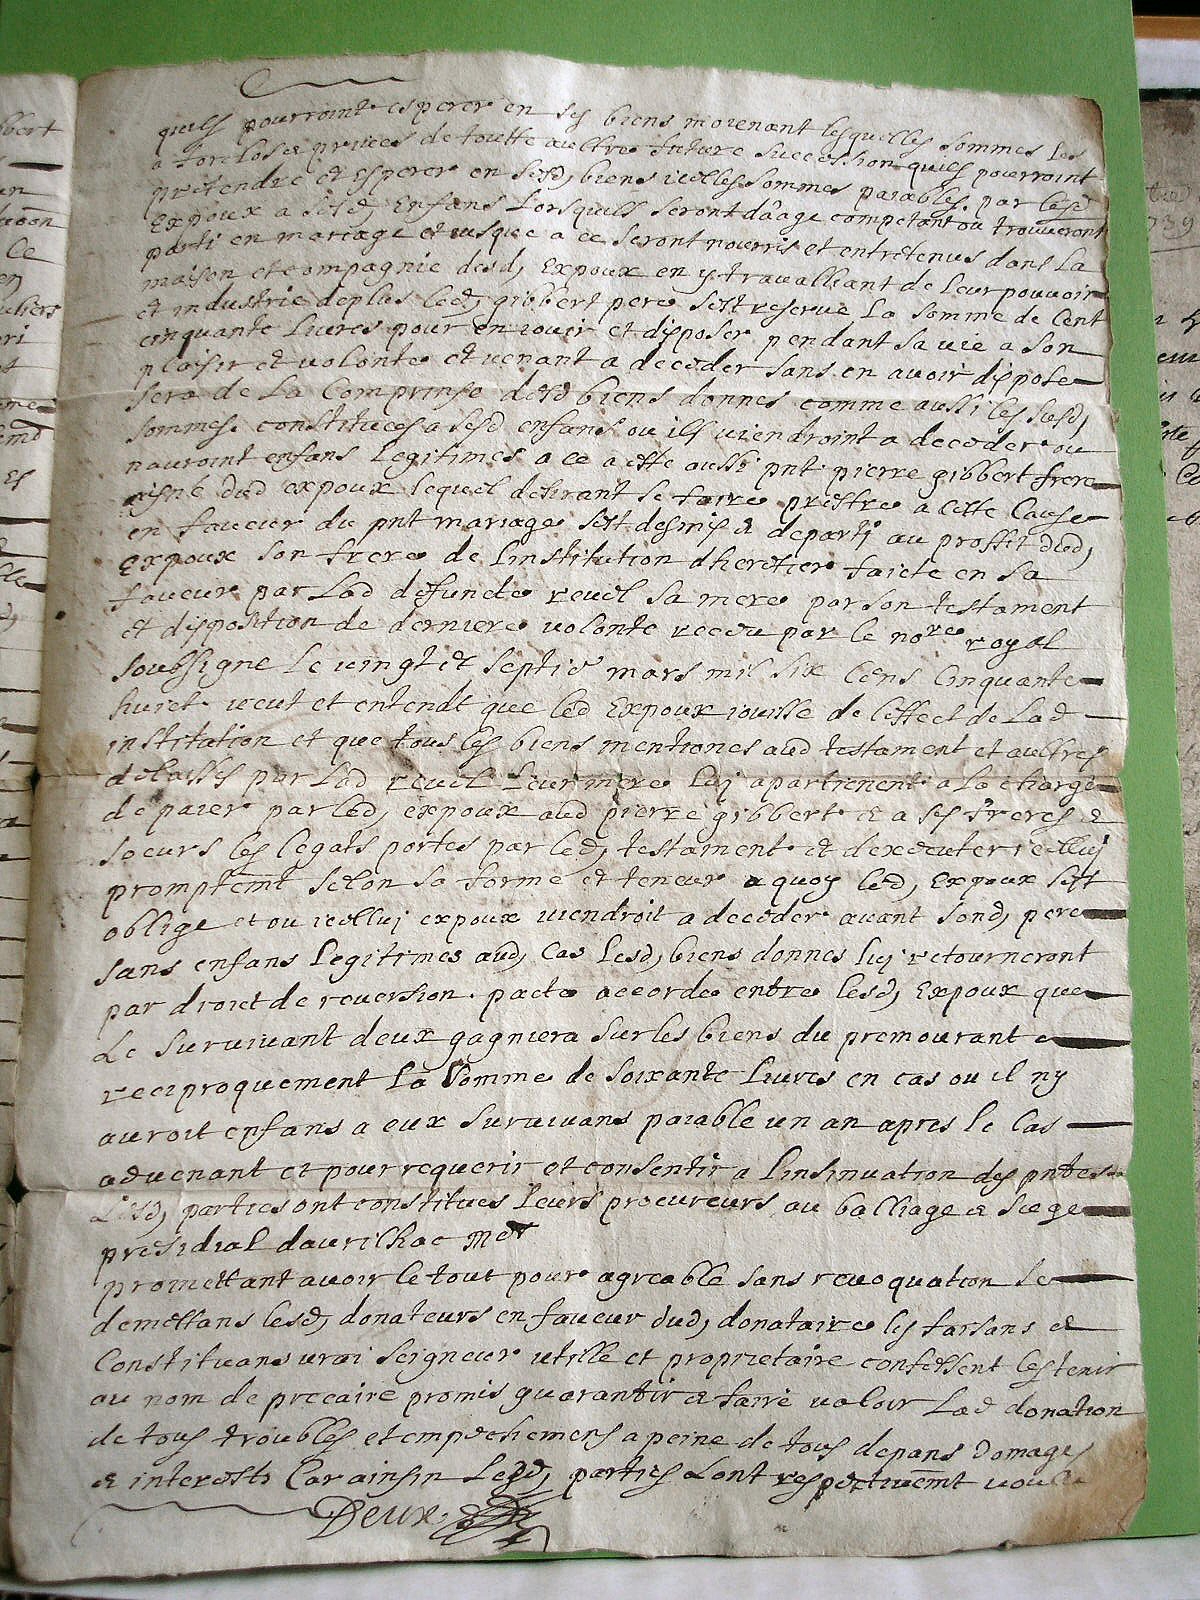 quils pourroint esperer en ses biens moienant lesquelles sommes les
a forclos et privés de toutte aultre future succession quils pourroint
pretendre et esperer en sesd, biens icelles sommes paiables par lesd
Expoux a sesd, Enfans Lorsquils seront dâage competant ou trouveront
parti en mariage et jusque a ce seront nourris et entretenus dans La
maison et compagnie desd, Expoux en y travalliant de Leur pouvoir
et industrie deplus led, gibbert pere sest reserve La somme de Cent
cinquante Livres pour en jouir et disposer pendant sa vie a son
plaisir et volonte et venant a deceder sans en avoir dispose
sera de La Comprinse desd biens donnes comme aussi les susd,
sommes constituees a sesd enfans ou ils viendroint a deceder ou
nauroint enfans Legitimes a ce a este aussi pnt pierre gibbert frere
aisne dud expoux lequel desirant se faire prestre a cette Cause
en faveur du pnt mariage sest desmis et departi au proffit dud,
Expoux son frere de Linstitution dheretier faicte en sa
faveur par Lad defuncte revel sa mere par son testament
et disposition de derniere volonte receu par le nore royal
soubsigne Le vingt et septie mars mil six Cens Cinquante
huict veut et entendt que led Expoux jouisse de leffect de Lad
institution et que tous les biens mentiones aud testament et aultres
delaisses par Lad revel Leur mere Luj apartienent a La charge
de paier par led, expoux aud pierre gibbert et a ses freres et
soeurs les legats portes par led, testament et dexecuter icelluj
promptemt selon sa forme et teneur a quoy led, Expoux sest
oblige et ou icelluj expoux viendroit a deceder avant sond, pere
sans enfans Legitimes aud, Cas Lesd, biens donnes luj retourneront
par droict de reversion. pacte accorde entre lesd, Expoux que
Le Survivant deux gagniera sur les biens du premourant
reciproquement La somme de soixante Livres en cas ou il ny
auroit enfans a eux survivans paiable un an apres le Cas
advenant et pour requerir et consentir a Linsinuation des pntes
Lesd, parties ont constitues Leurs procureurs au balliage et siege
presidial daurilhac Me
promettant avoir le tout pour agreable sans revoquation se
demettans lesd, donateurs en faveur dud, donataire les faisans et
Constituans vrai seigneur utille et proprietaire confessent les tenir
au nom de precaire promis guarantir et faire valoir Lad donation
de tous troubles et empechemens a peine de tous depans Domages
et interests Car ainsin Lesd, parties Lont respectivemt voulu
Deux